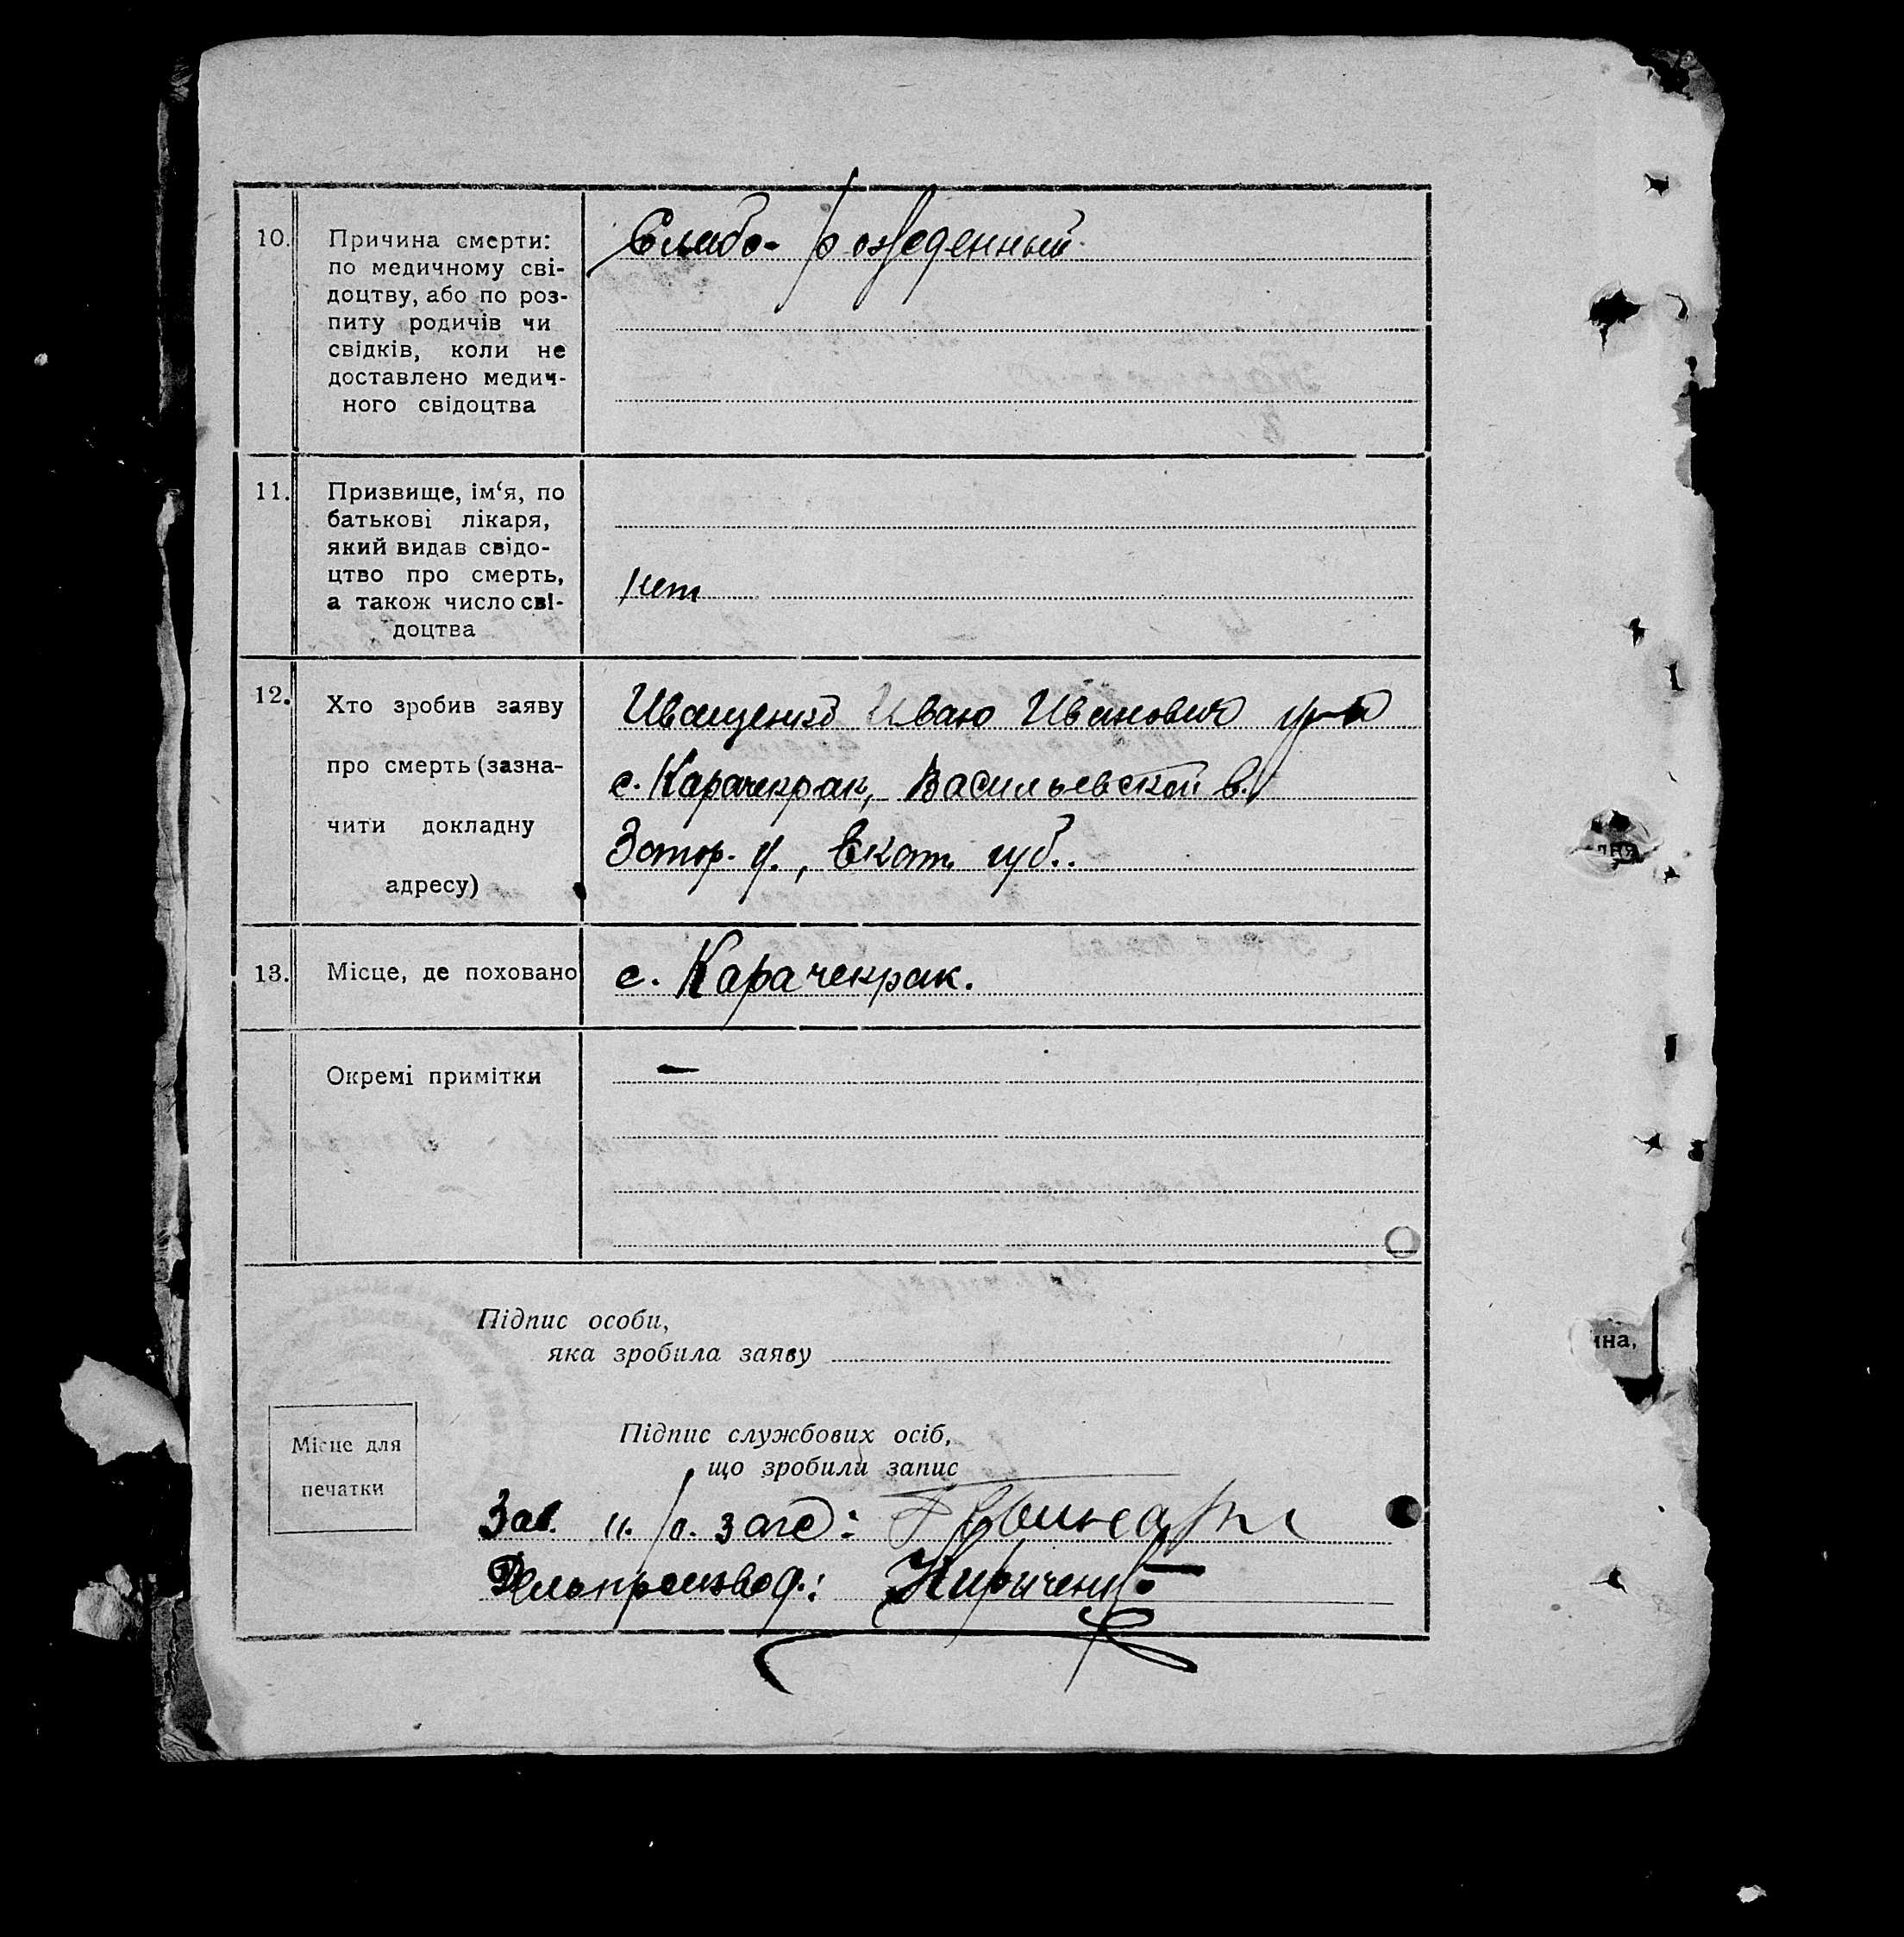 10.
Причина смерти:
по медичному сві-
доцтву, або по роз-
питу родичів чи
свідків, коли не
доставлено медич-
ного свідоцтва
Слабо-рожденный.
11.
Призвище, ім‘я, по
батькові лікаря,
який видав свідо-
цтво про смерть,
а також число сві-
доцтва
нет
12.
Хто зробив заяву
про смерть (зазна-
чити докладну
адресу)
Иващенко Иван Иванович гр-н
с. Карачекрак, Васильевской в.
Запор. у., Екат. губ..
13.
Місце, де поховано
с. Карачекрак.
Окремі примітки
—
Підпис особи,
яка зробила заяву
Місце для
печатки
Підпис службових осіб,
що зробили запис
Зав. п/о. загс:
Делопроизвод.: Кириченко
дня
ина,